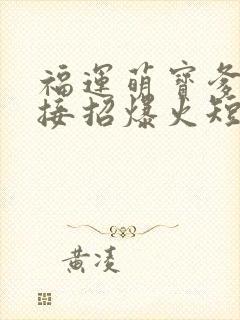 福運萌寶爹
接招爆火短
黃凌